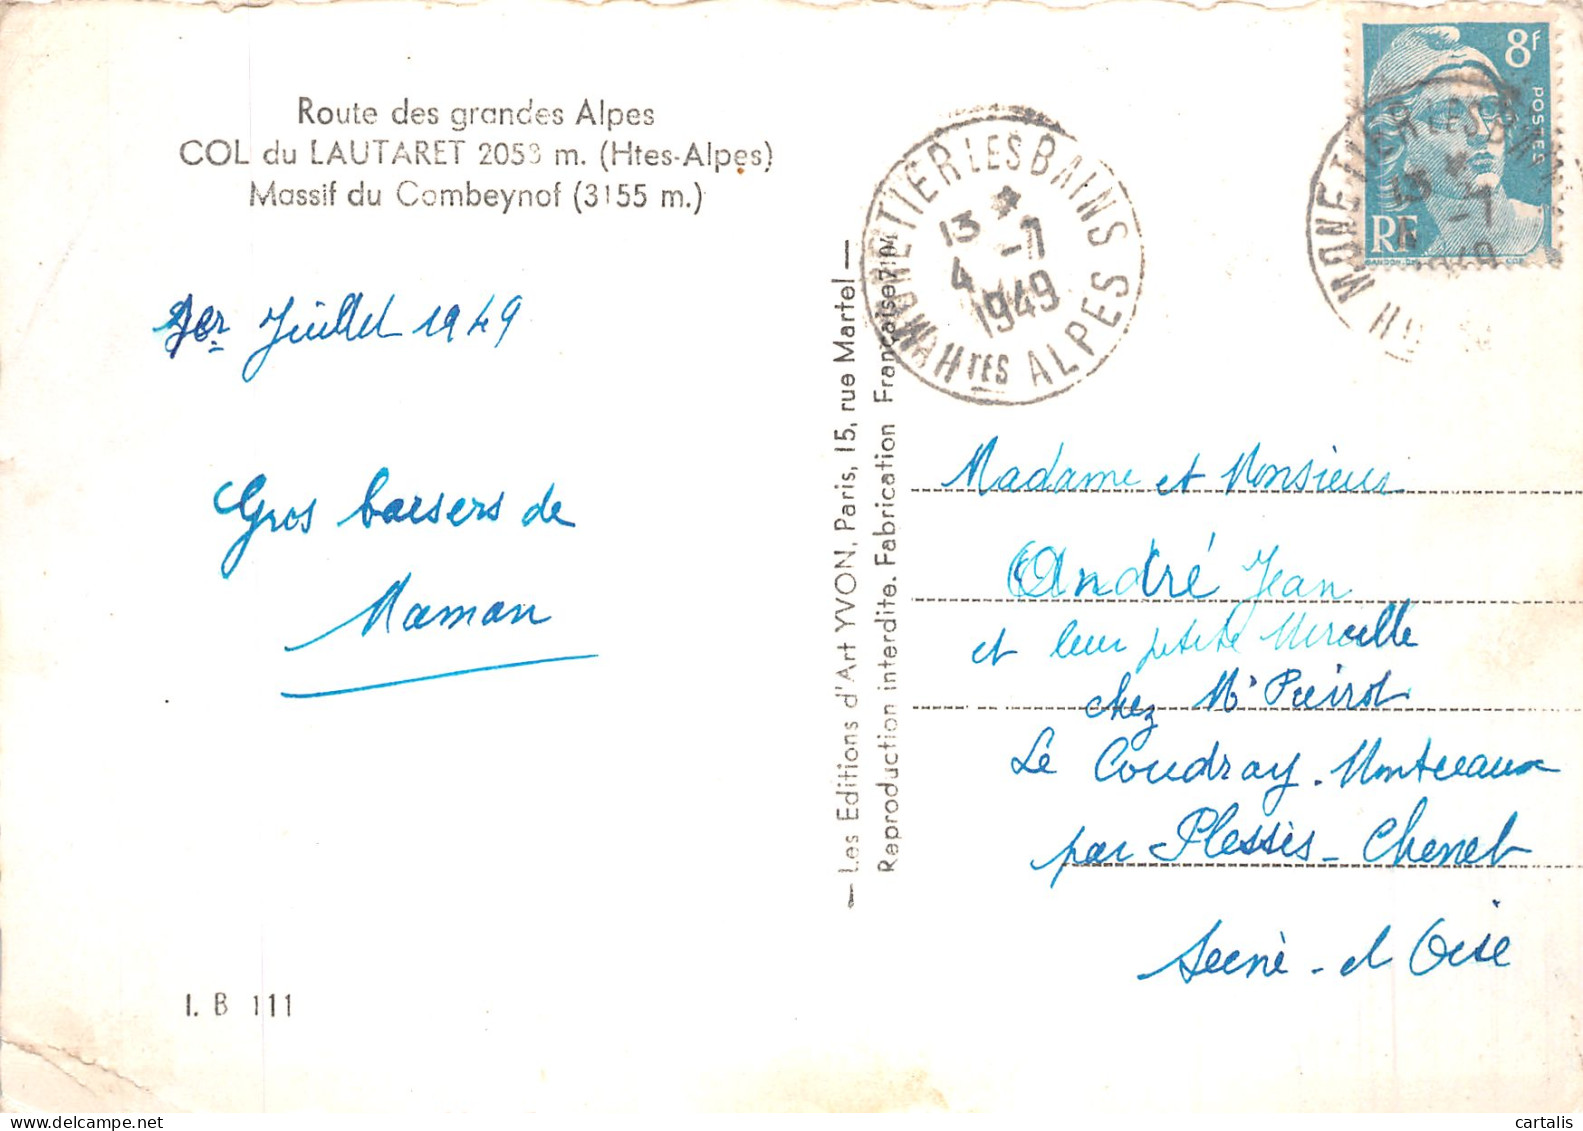 Route des grandes Alpes
COL du LAUTARET 2058 m. (Htes-Alpes)
Massif du Combeynof (3155 m.)
1er Juillet 1949
Gros baisers de
Maman
I. B 111
— Les Editions d'Art YVON, Paris, 15, rue Martel —
Reproduction interdite. Fabrication Française
MONETIER LES BAINS
13 *
4 -7
1949
Htes ALPES
8f
POSTES
RF
MONETIER LES BAINS
13 *
-7
1949
Madame et Monsieur
André Jean
et leur petite Mireille
chez Mr Poirot
Le Coudray-Montceaux
par Plessis-Chenet
Seine-et Oise
cartalis